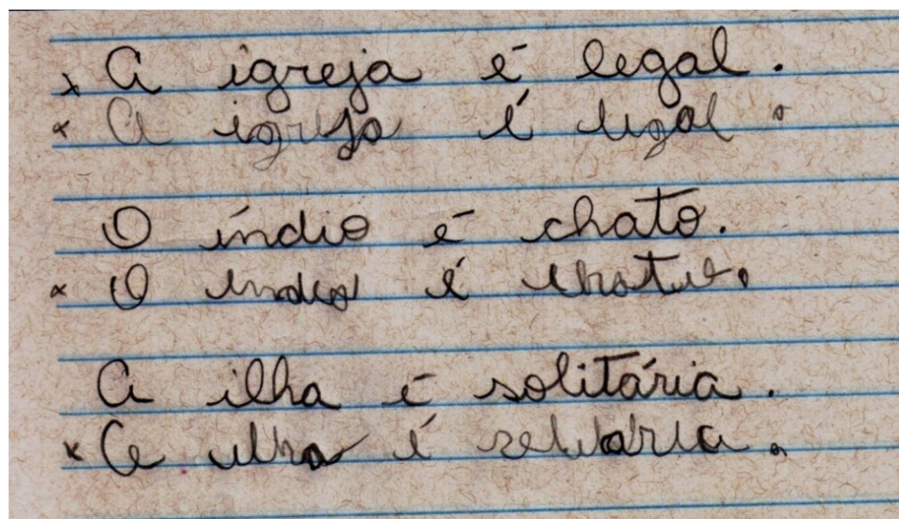 x A igreja é legal.
x A igreja é legal.
O índio é chato.
x O índio é chato.
A ilha é solitária.
x A ilha é solitária.